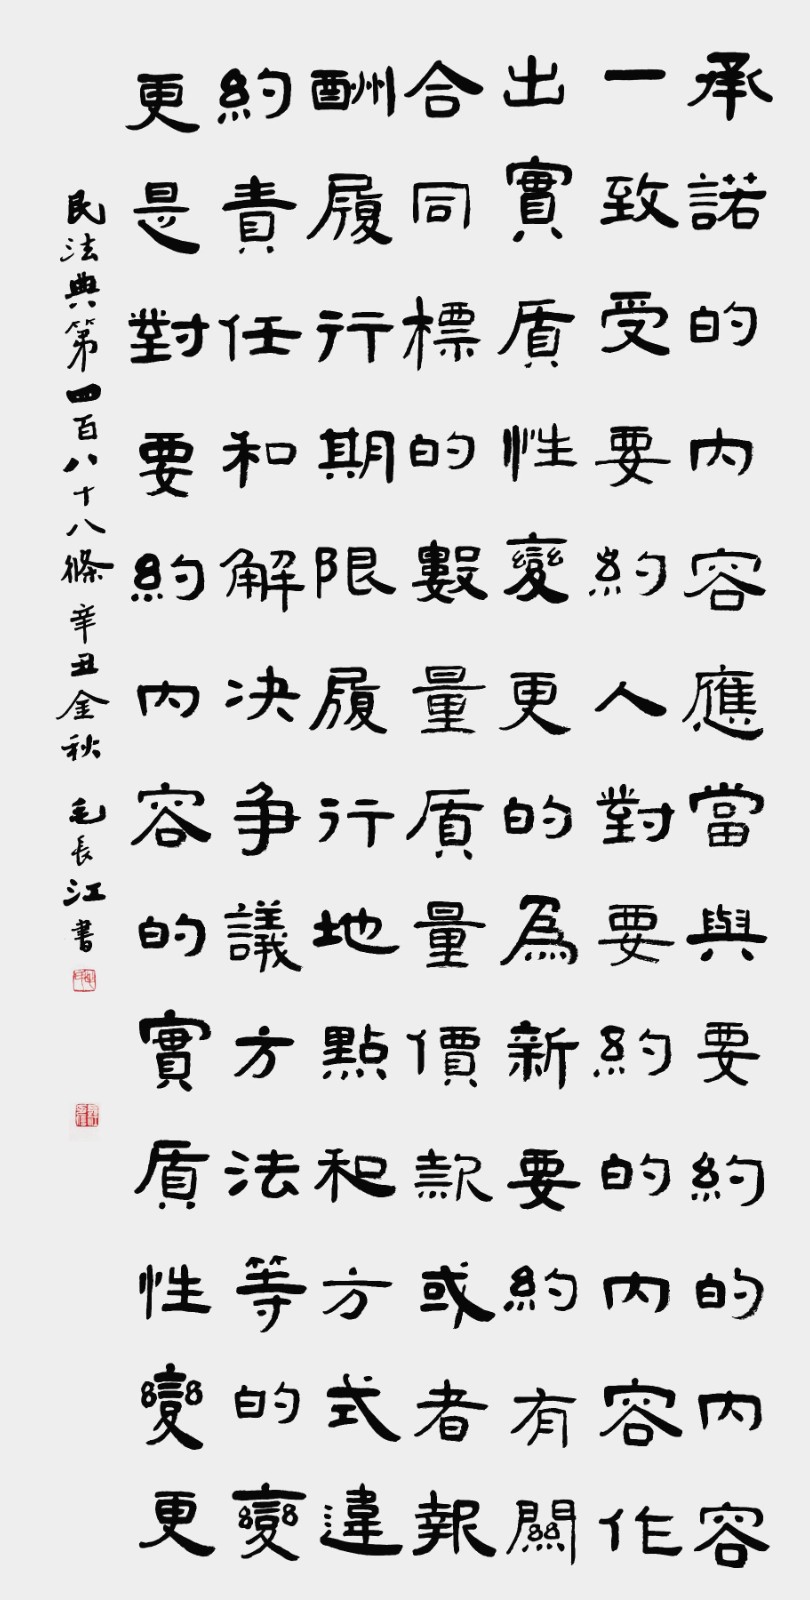 承諾的内容應當與要約的内容
一致受要約人對要約的内容作
出實質性變更的為新要約有關
合同標的數量質量價款或者報
酬履行期限履行地點和方式違
約責任和解决争議方法等的變
更是對要約内容的實質性變更
民法典第四百八十八條 辛丑金秋 毛長江書